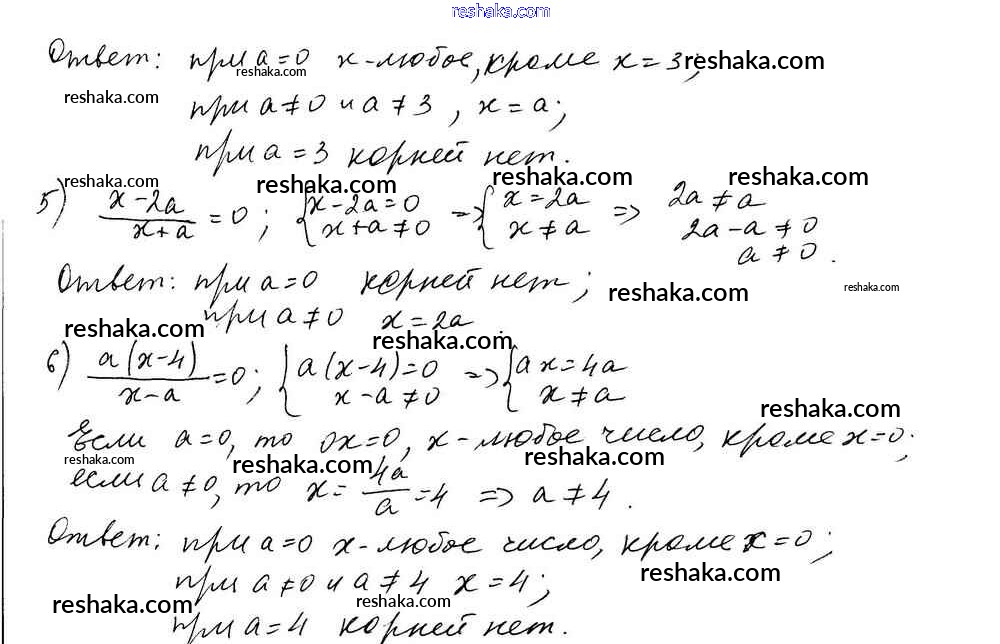 reshaka.com
Ответ: при a=0 x-любое, кроме x=3;
reshaka.com reshaka.com
reshaka.com
при a≠0 и a≠3, x=a;
при a=3 корней нет.
reshaka.com reshaka.com reshaka.com reshaka.com
5) (x-2a)/(x+a) = 0; {x-2a=0 x+a≠0 => {x=2a x≠a => 2a≠a
2a-a≠0
a≠0.
Ответ: при a=0 корней нет;
reshaka.com reshaka.com
при a≠0 x=2a.
reshaka.com reshaka.com
6) a(x-4)/(x-a) = 0; {a(x-4)=0 x-a≠0 => {ax=4a x≠a
reshaka.com
Если a=0, то 0x=0, x-любое число, кроме x=0;
reshaka.com reshaka.com reshaka.com
если a≠0, то x=4a/a=4 => a≠4.
Ответ: при a=0 x-любое число, кроме x=0;
reshaka.com
при a≠0 и a≠4 x=4;
reshaka.com reshaka.com
при a=4 корней нет.